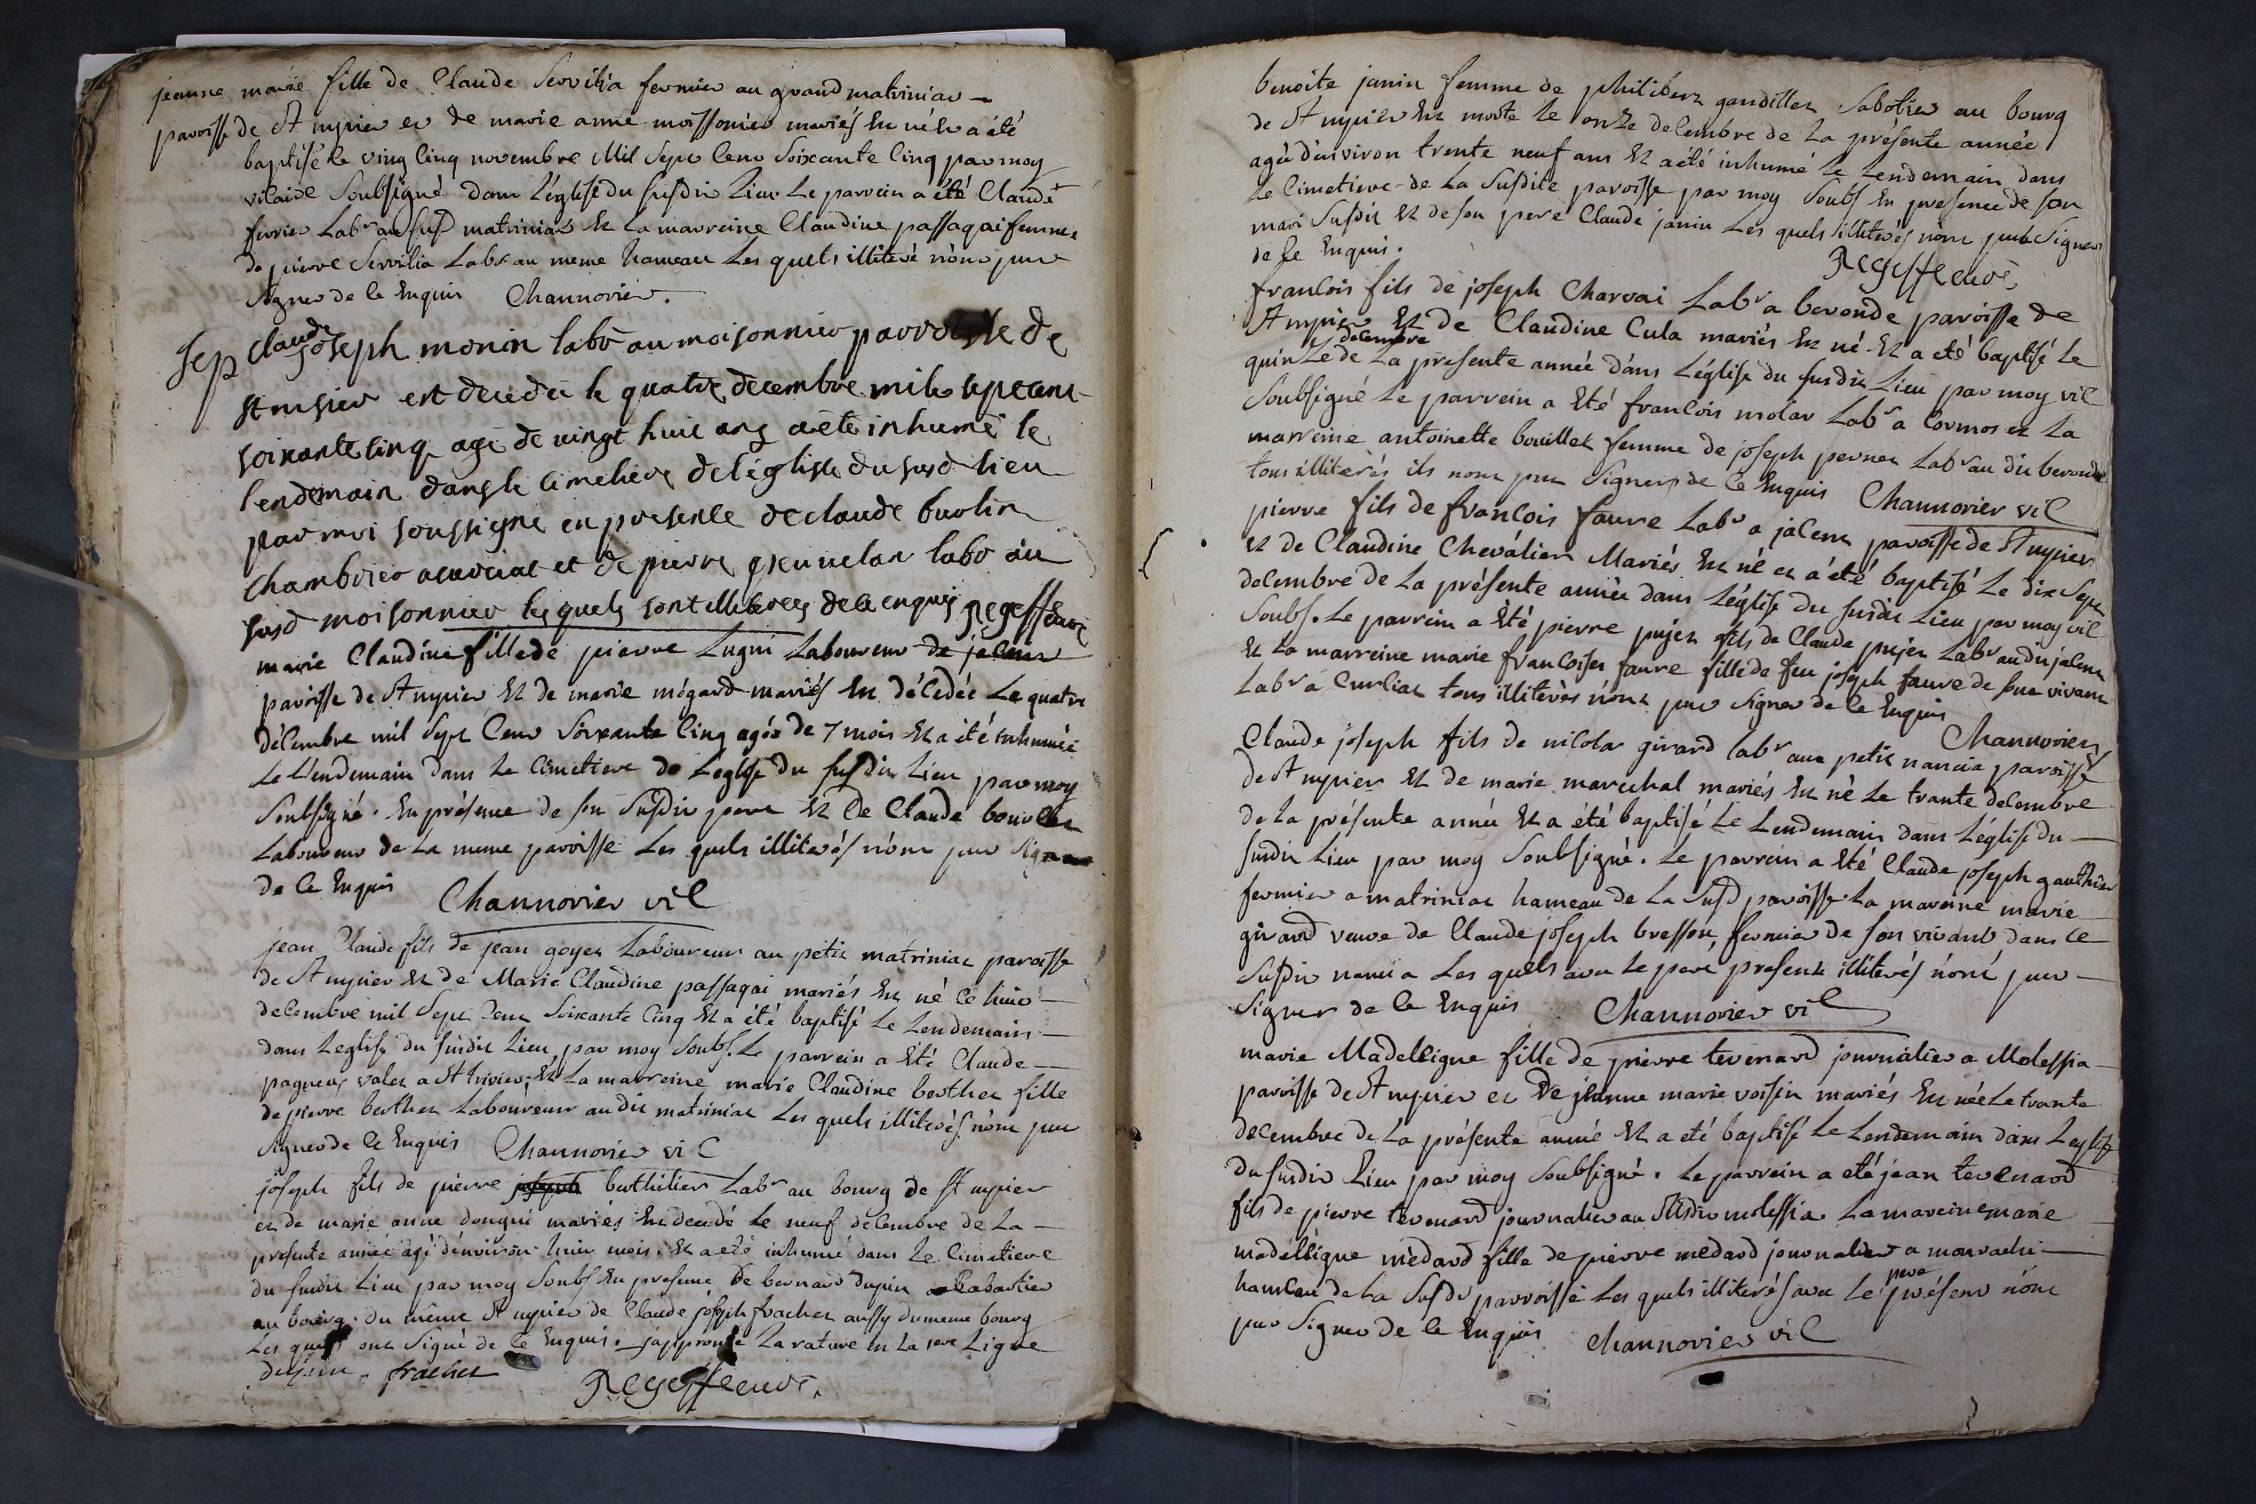 jeanne marie fille de Claude Servilia fermier au grand matriniac
paroisse de St nizier et de marie anne moissonier mariés est née a été
baptisé le ving cinq novembre Mil Sept Cent Soixante Cinq par moy
vicaire Soubsigné dans l'église du susdit Lieu Le parrein a été Claude
fevrier Labr au susd matriniac et La marreine Claudine passaqai femme
de pierre Servilia Labr au meme hameau Les quels illiteré n'ont pu
signer de ce Enquis Channorier.
Sep Claude joseph monin labr au moisonnier parroisse de
st nisier est decedée le quatre decembre mile sept cent
soixante cinq agé de vingt huit ans a été inhumé le
lendemain dans le cimetiere de l'eglisse du susd lieu
par moi soussigné en presence de claude burlin
chambrier a curciat et de pierre labr au
susd moisonnier les quels sont illiterés de ce enquis
marie Claudine fille de pierre Lugni Laboureur de jalem
paroisse de St nizier et de marie mégard mariés est décedée Le quatre
décembre mil Sept Cent Soixante Cinq agée de 7 mois et a été inhumée
Le Lendemain dans Le Cimetiere de Leglise du susdit Lieu par moy
Soubsigné. En présence de son Susdit pere et de Claude bouvier
Laboureur de La meme paroisse Les quels illiterés n'ont pu signer
de ce Enquis Channorier vic
jean Claude fils de jean goyet Laboureur au petit matriniac paroisse
de St nizier et de Marie Claudine passaqai mariés est né Le huit
decembre mil Sept Cent Soixante Cinq et a été baptisé Le Lendemain
dans Leglise du susdit Lieu par moy Soubs. Le parrein a Eté Claude
pagneux valet a St trivier, et La marreine marie Claudine berthet fille
de pierre berthet Laboureur au dit matriniac Les quels illiterés n'ont pu
signer de ce Enquis Channorier vic
joseph fils de pierre joseph berthilier Labr au bourg de St nizier
et de marie anne dongui mariés est decedé Le neuf decembre de La
presente année agé d'environ huit mois. et a été inhumé dans Le Cimetiere
du susdit Lieu par moy Soubs En presence de bernard dupin Cabartier
au bourg du même St nizier de Claude joseph frachet aussy du meme bourg
Les quels ont Signé de ce Enquis. japprouve La rature en La 1ere Ligne
dupin frachet
benoite janin femme de philibert gandillet Sabotier au bourg
de St nizier est morte Le onze decembre de La présente année
agée d'environ trente neuf ans et a été inhumé Le Lendemain dans
Le Cimetiere de La Susdite paroisse par moy Soubs En presence de son
mari Susdit et de son pere Claude janin Les quels illiterés n'ont pu Signer
de ce Enquis.
francois fils de joseph Charvai Labr a beronde paroisse de
St nizier et de Claudine Cula mariés est né et a été baptisé Le
quinze decembre de La presente année dans L'église du susdit Lieu par moy vic
Soubsigné Le parrein a Eté francois molar Labr a Cormos et La
marreine antoinette bouillet femme de joseph pernet Labr au dit beronde
tous illiterés ils nont pu Signer de ce Enquis Channorier vic
pierre fils de francois faure Labr a jalem paroisse de St nizier
et de Claudine Chevalier Mariés est né et a été baptisé Le dix Sept
decembre de La présente année dans L'église du susdit Lieu par moy vic
Soubs. Le parrein a Eté pierre pujet fils de Claude pujet Labr au dit jalem
et La marreine marie francoise faure fille de feu joseph faure de son vivant
Labr a Curciat tous illiterés n'ont pu signer de ce Enquis
Channorier
Claude joseph fils de nicolas girard labr au petit nancia paroisse
de St nizier et de marie marechal mariés est né Le trante decembre
de La présente année et a été baptisé Le Lendemain dans L'église du
susdit Lieu par moy Soubsigné. Le parrein a Eté Claude joseph gauthier
fermier a matriniac hameau de La Susd paroisse La mareine marie
girard veuve de Claude joseph bresson, fermier de son vivant dans Le
Susdit nancia Les quels avec Le pere present illiterés n'ont pu
Signer de ce Enquis Channorier vic
marie Madelligne fille de pierre tevenard journalier a Molessia
paroisse de St nizier et de jeanne marie voisin mariés est née Le trante
decembre de La présente année et a été baptisé Le Lendemain dans Leglise
du susdit Lieu par moy Soubsigné. Le parrein a eté jean tevenard
fils de pierre tevenard journalier au Susdit molessia La mareine marie
madelligne médard fille de pierre medard journalier a
hameau de La Susdt parroisse Les quels illiterés avec Le pere présent n'ont
pu Signer de ce Enquis Channorier vic